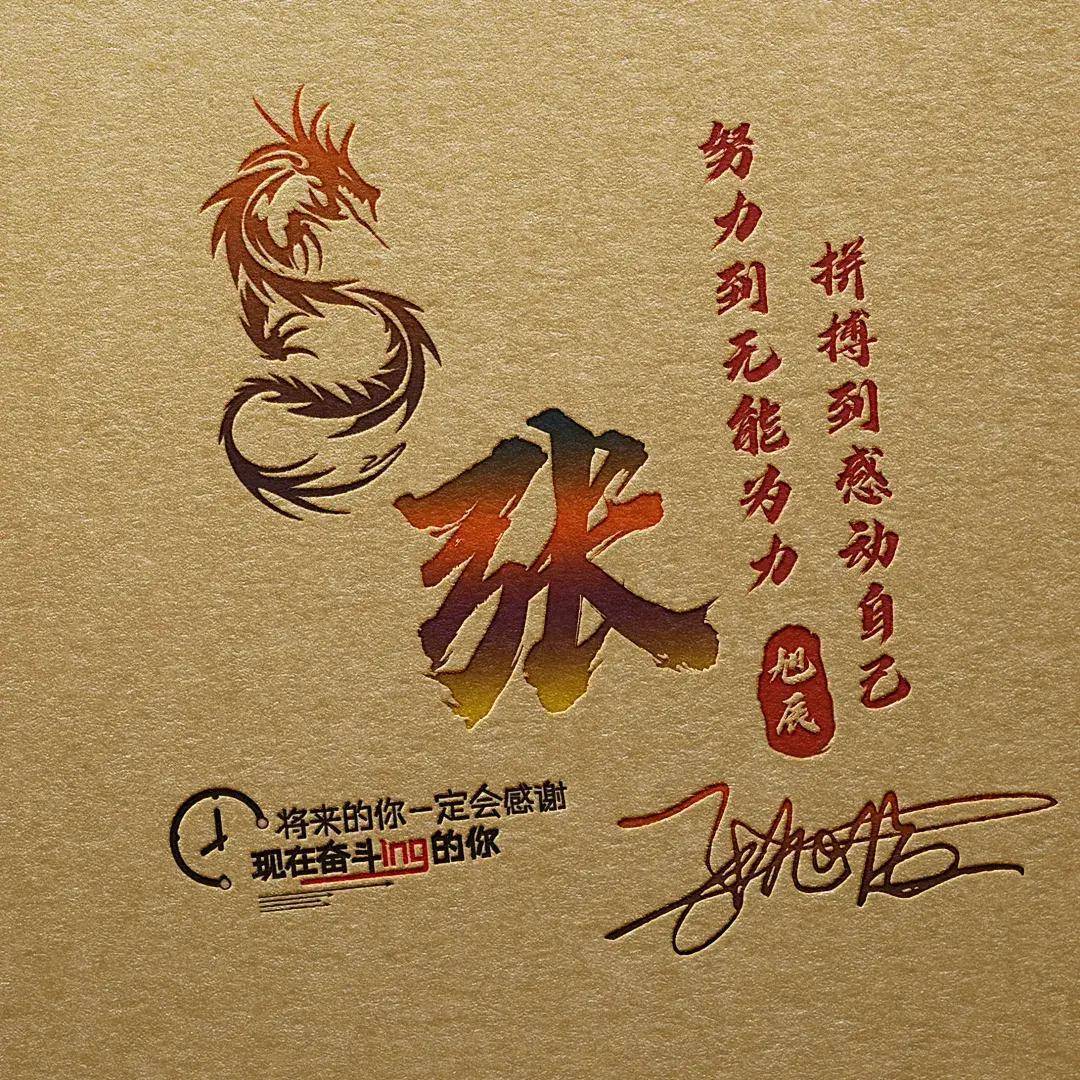 努力到无能为力
拼搏到感动自己
旭辰
张
将来的你一定会感谢
现在奋斗ing的你
张旭辰